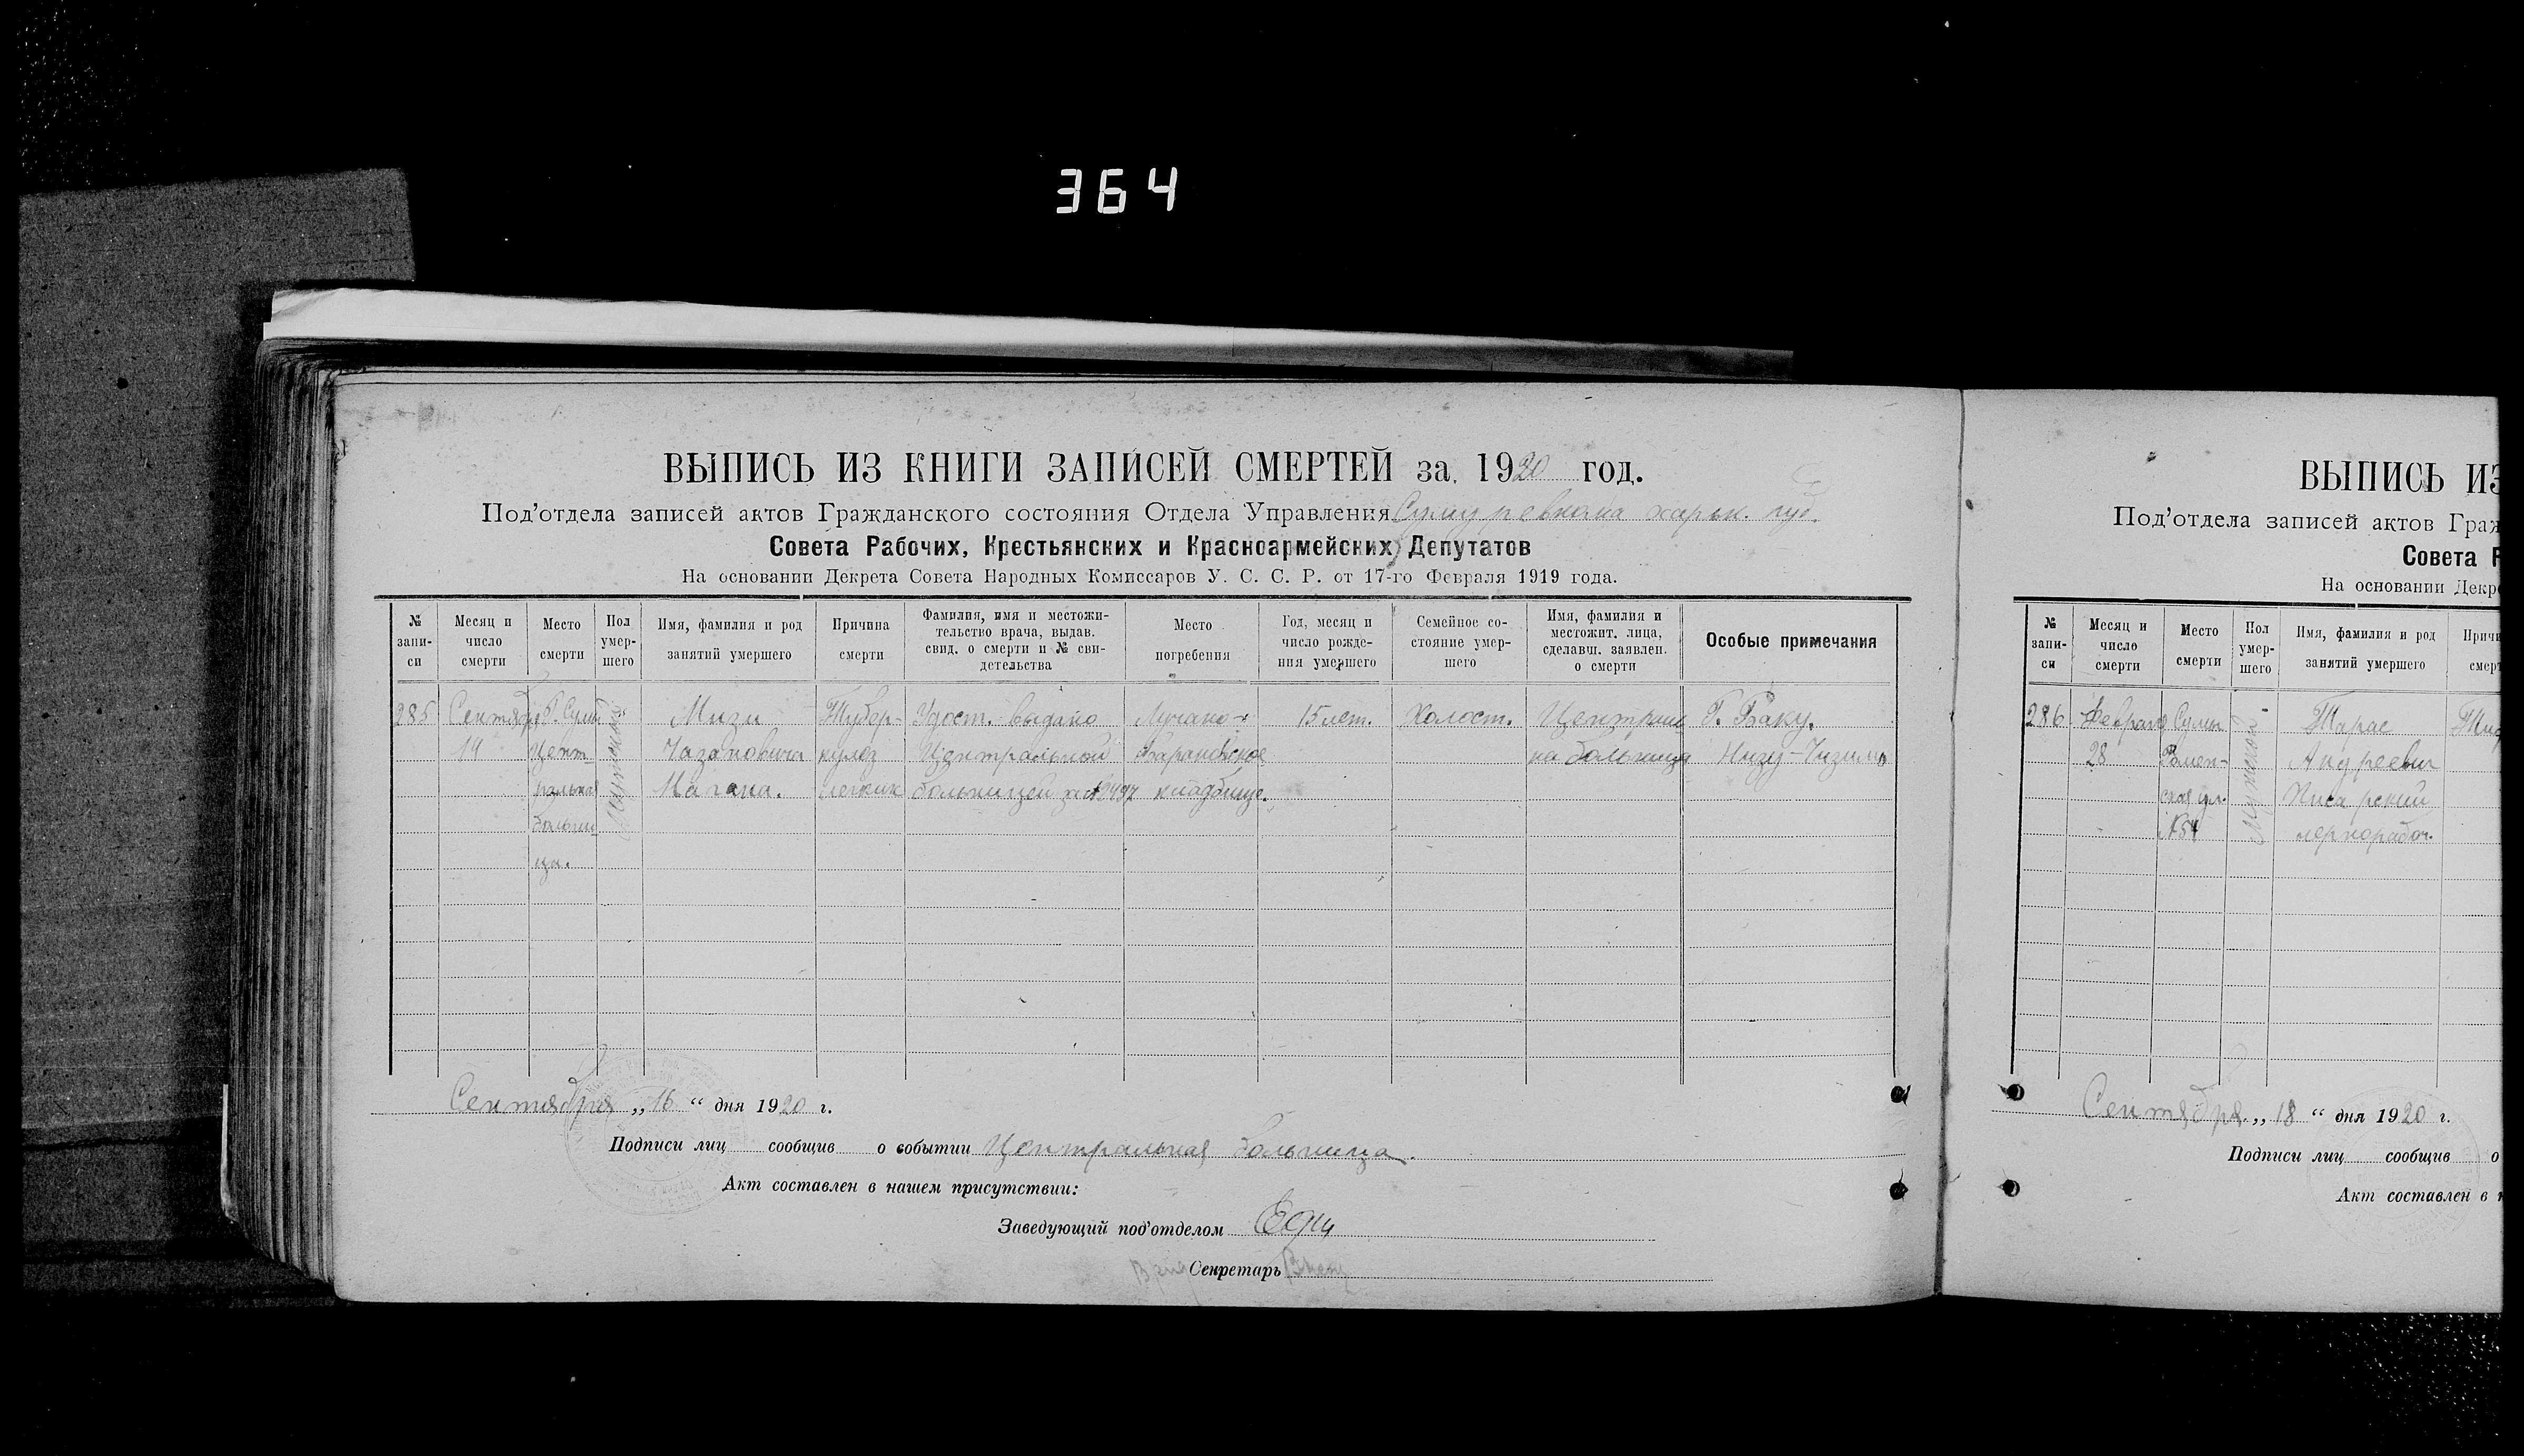 364
ВЫПИСЬ ИЗ КНИГИ ЗАПИСЕЙ СМЕРТЕЙ за 1920 год.
Под'отдела записей актов Гражданского состояния Отдела Управления Сумуревкома харьк. губ.
Совета Рабочих, Крестьянских и Красноармейских Депутатов
На основании Декрета Совета Народных Комиссаров У. С. С. Р. от 17-го Февраля 1919 года.
№ запи-си
Месяц и число смерти
Место смерти
Пол умер-шего
Имя, фамилия и род занятий умершего
Причина смерти
Фамилия, имя и местожи-тельство врача, выдав. свид. о смерти и № сви-детельства
Место погребения
Год, месяц и число рожде-ния умершего
Семейное со-стояние умер-шего
Имя, фамилия и местожит. лица, сделавш. заявлен. о смерти
Особые примечания
285
Сентября
14
г. Сумы
Цент-
ральная
больни-
ца.
Мужской
Мизи
Нагана.
Тубер-
кулез
легких
Удост. выдано
Центральной
больницей за №
Барановское
кладбище.
15 лет.
Холост.
Централь
на больница
Г. Баку.
Сентября „16“ дня 1920 г.
Подписи лиц сообщив о событии Центральная больница.
Акт составлен в нашем присутствии:
Заведующий под'отделом
Секретарь
ВЫПИСЬ ИЗ
Под'отдела записей актов Граж
Совета Р
На основании Декре
№ запи-си
Месяц и число смерти
Место смерти
Пол умер-шего
Имя, фамилия и род занятий умершего
Причи
смерт
286
Февраля
28
Сумы
Ромен-
ская ул.
№54
Мужской
Тарас
Андреевич
Писаренко
чернорабоч.
Сентября „18“ дня 1920 г.
Подписи лиц сообщив о
Акт составлен в н